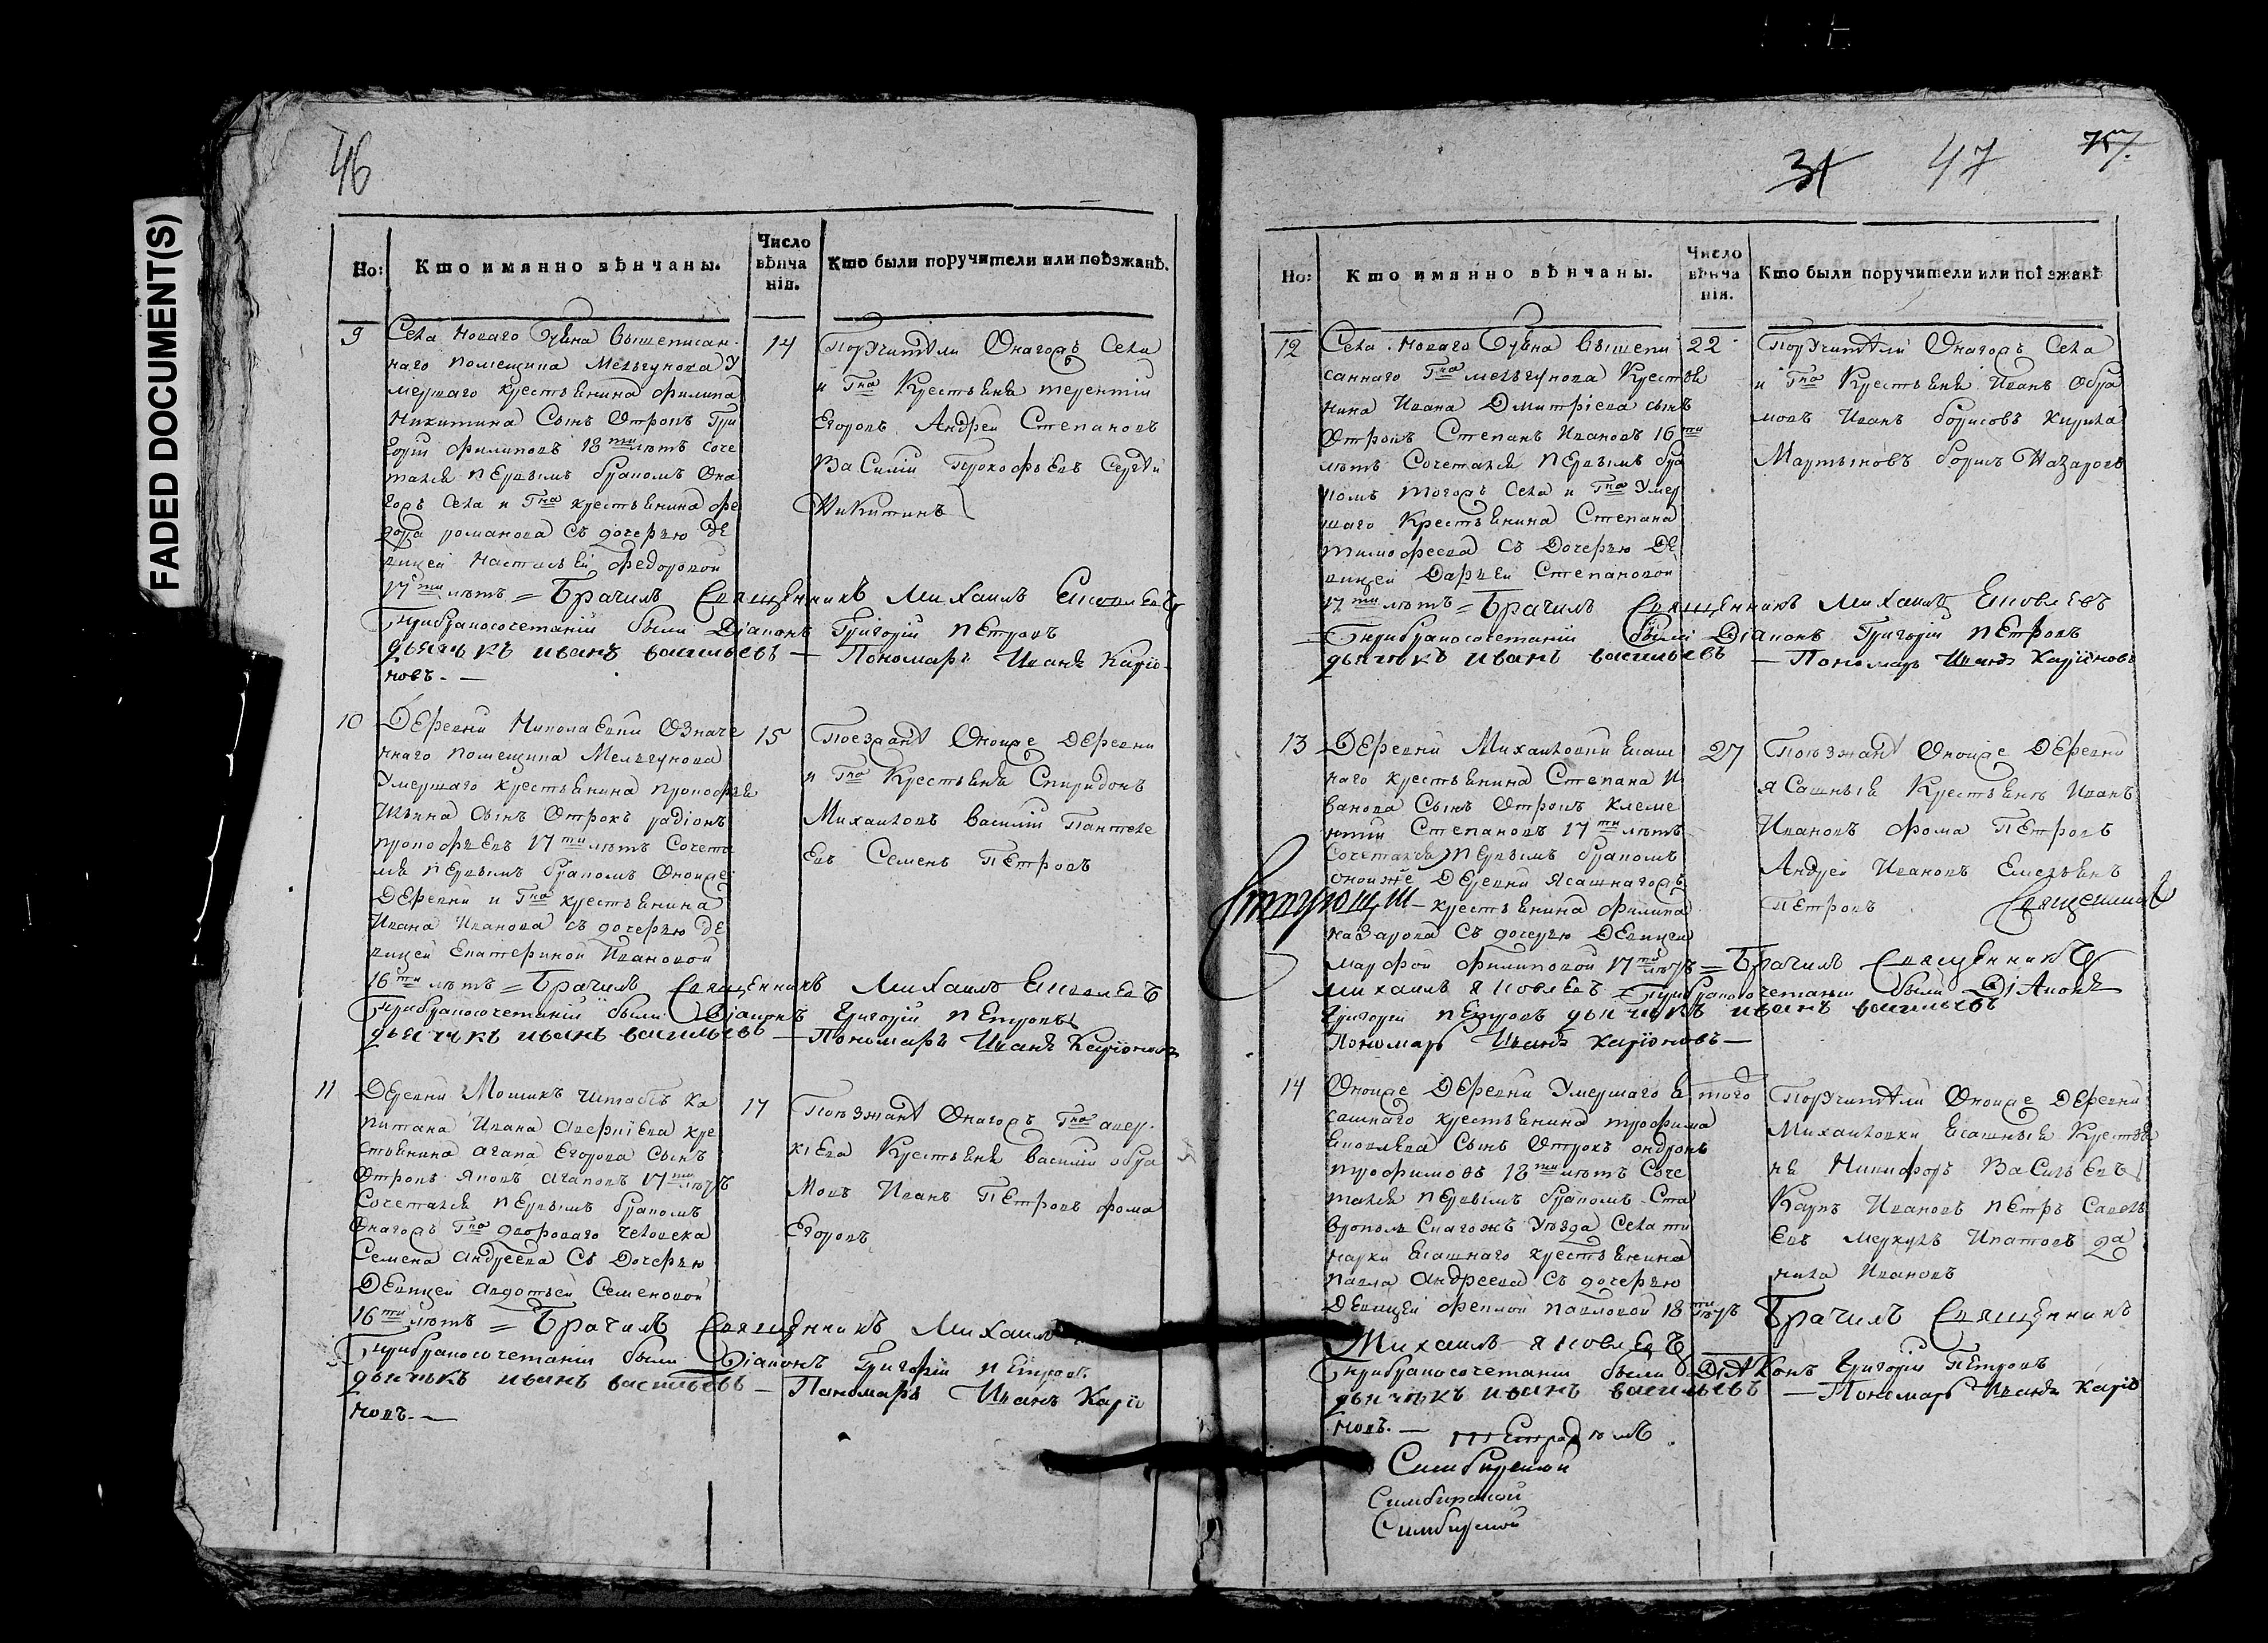 FADED DOCUMENT(S)
46
Но:
Кто имянно вѣнчаны.
Число
вѣнча
нія.
Кто были поручители или поѣзжанѣ.
9
Села Новаго Чувна вышеписан
наго помещика Мельгунова у
мершаго крестьянина филипа
Никитина Сынъ Отрокъ Гри
горіи филиповъ 18 ти лѣтъ соче
тался первымъ бракомъ Она
гожъ Села и Гна крестьянина фе
дора романова съ дочерью де
вицей Настасьей федоровой
17 ти лѣтъ = Брачилъ Священникъ Михаилъ Яковлевъ
Прибракосочетаніи были Діаконъ Григоріи Петровъ
дьячокъ иванъ васильевъ — Пономарь Иванъ Каріо
новъ. —
14
Поручители Онагожъ Села
и Гна Крестьяне терентіи
Егоровъ Андреи Степановъ
Василіи Прокофьевъ Сергѣи
Никитинъ
10
Деревни Николаевки Означе
ннаго помещика Мельгунова
Умершаго крестьянина прокофья
Ильина Сынъ Отрокъ радіонъ
прокофьевъ 17 ти лѣтъ Сочета
лся первымъ бракомъ Оноиже
Деревни и Гна крестьянина
Ивана Иванова съ дочерью де
вицей Екатериной Ивановой
16 ти лѣтъ = Брачилъ Священникъ Михаилъ Яковлевъ
Прибракосочетаніи были Діаконъ Григоріи Петровъ
дьячокъ иванъ васильевъ — Пономарь Иванъ Каріоновъ
15
Поезжанѣ Оноиже Деревни
и Гна Крестьяне Спиридонъ
Михаиловъ василіи Пантеле
евъ Семенъ Петровъ
11
Деревни Мошикъ штабсъ Ка
питана Ивана Аверкіева кре
стьянина агапа Егорова Сынъ
Отрокъ Яковъ Агаповъ 17 ти лѣтъ
Сочетался первымъ бракомъ
Онагожъ Гна дворового человека
Семена Андреева Съ Дочерью
Девицей авдотьей Семеновой
16 ти лѣтъ = Брачилъ Священникъ Михаилъ
Прибракосочетаніи были Діаконъ Григоріи Петровъ
дьячокъ иванъ васильевъ — Пономарь Иванъ Каріо
новъ. —
17
Поѣзжанѣ Онагожъ Гна авер
кіева Крестьяне василіи абра
мовъ Иванъ Петровъ фома
Егоровъ
31 47
Но:
Кто имянно вѣнчаны.
Число
вѣнча
нія.
Кто были поручители или поѣзжанѣ
12
Села Новаго Чувна вышепи
саннаго Гна мельгунова Крестья
нина Ивана Дмитріева сынъ
Отрокъ Степанъ Ивановъ 16 ти
лѣтъ Сочетался первымъ бра
комъ тогожъ Села и Гна Умер
шаго Крестьянина Степана
тимофеева съ Дочерью Де
вицей Дарьей Степановой
17 ти лѣтъ = Брачилъ Священникъ Михаилъ Яковлевъ
Прибракосочетаніи были Діаконъ Григоріи Петровъ
дьячокъ иванъ васильевъ — Пономарь Иванъ Каріоновъ
22
Поручители Онагожъ Села
и Гна Крестьяне Иванъ абра
мовъ Иванъ борисовъ Кирила
Мартыновъ борисъ Назаровъ
13
Деревни Михаиловки ясаш
наго крестьянина Степана И
ванова Сынъ Отрокъ клеме
нтіи Степановъ 17 ти лѣтъ
Сочетался первымъ бракомъ
оноиже деревни Ясашнагожъ
крестьянина филипа
назарова съ дочерью Девицей
марфой филиповой 17 ти лѣтъ = Брачилъ Священникъ
михаилъ яковлевъ Прибракосочетаніи были Діаконъ
Григоріи Петровъ дьячокъ иванъ васильевъ
Пономарь Иванъ Каріоновъ —
27
Поѣзжанѣ Оноиже Деревни
ясашныя Крестьяне Иванъ
Ивановъ фома Петровъ
Андреи Ивановъ Емельянъ
Петровъ Священникъ
14
Оноиже Деревни Умершаго я
сашнаго крестьянина трофима
Яковлева Сынъ Отрокъ ондронъ
трофимовъ 18 ти лѣтъ Соче
тался первымъ бракомъ Ста
вропольскагожъ Уѣзда Села ти
нарки ясашнаго крестьянина
павла андреева съ дочерью
Девицей феклой павловой 18 ти лѣтъ Брачилъ Священникъ
Михаилъ яковлевъ
Прибракосочетаніи были Діаконъ Григоріи Петровъ
дьячокъ иванъ васильевъ — Пономарь Иванъ Каріо
новъ. —
того
Поручители Оноиже Деревни
Михаиловки ясашныя Крестья
не Никифоръ Васильевъ
Карпъ Ивановъ Петръ Савель
евъ меркулъ Ипатовъ да
нила Ивановъ
Симбирской
Симбирской
Симбирской